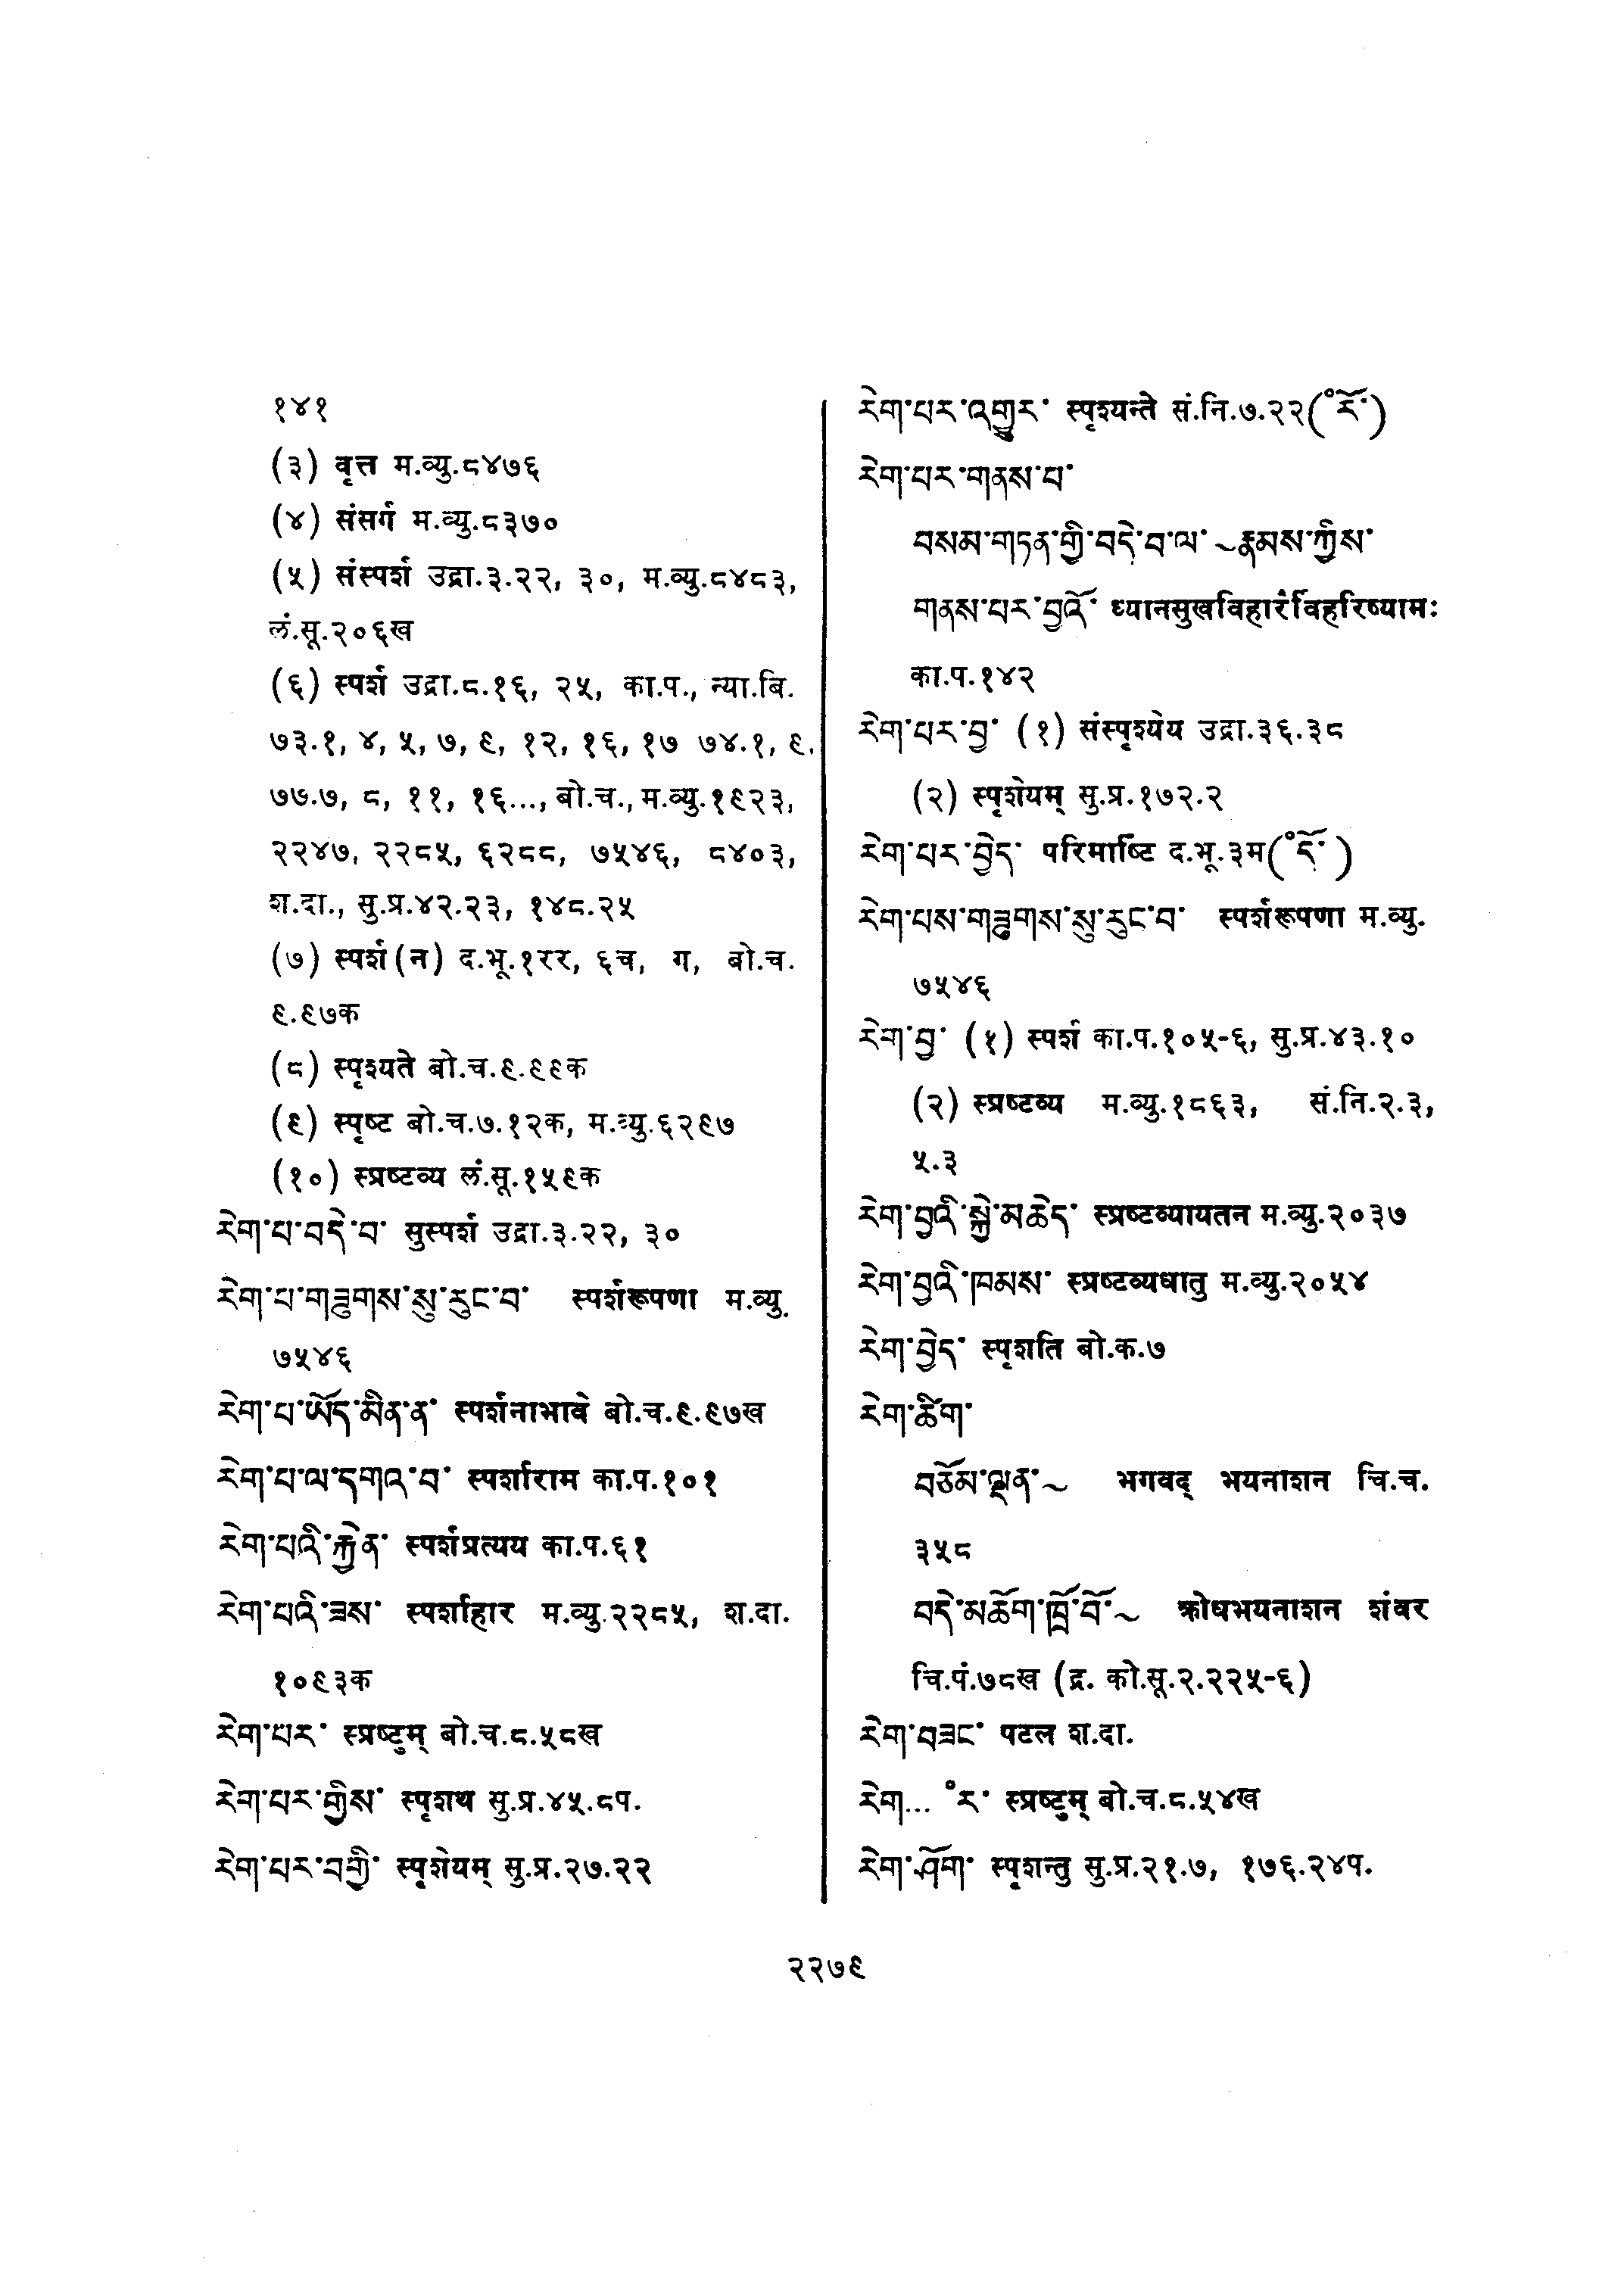 १४१
(३) वृत्त म.व्यु.८४७६
(४) संसर्ग म.व्यु.८३७०
(५) संस्पर्श उद्रा.३.२२, ३०, म.व्यु.८४८३,
लं.सू.२०६ख
(६) स्पर्श उद्रा.८.१६, २५, का.प., न्या.बि.
७३.१, ४, ५, ७, ९, १२, १६, १७ ७४.१, ९,
७७.७, ८, ११, १६..., बो.च., म.व्यु.१९२३,
२२४७, २२८५, ६२८८, ७५४६, ८४०३,
श.दा., सु.प्र.४२.२३, १४८.२५
(७) स्पर्श(न) द.भू.१रर, ६च, ग, बो.च.
९.९७क
(८) स्पृश्यते बो.च.९.९९क
(९) स्पृष्ट बो.च.७.१२क, म.व्यु.६२९७
(१०) स्प्रष्टव्य लं.सू.१५९क
རེག་པ་བདེ་བ་ सुस्पर्श उद्रा.३.२२, ३०
རེག་པ་གཟུགས་སུ་རུང་བ་ स्पर्शरूपणा म.व्यु.
७५४६
རེག་པ་ཡོད་མིན་ན་ स्पर्शनाभावे बो.च.९.९७ख
རེག་པ་ལ་དགའ་བ་ स्पर्शाराम का.प.१०१
རེག་པའི་རྐྱེན་ स्पर्शप्रत्यय का.प.६१
རེག་པའི་ཟས་ स्पर्शाहार म.व्यु.२२८५, श.दा.
१०९३क
རེག་པར་ स्प्रष्टुम् बो.च.८.५८ख
རེག་པར་གྱིས་ स्पृशथ सु.प्र.४५.८प.
རེག་པར་བགྱི་ स्पृशेयम् सु.प्र.२७.२२
རེག་པར་འགྱུར་ स्पृश्यन्ते सं.नि.७.२२(°རོ་)
རེག་པར་གནས་པ་
བསམ་གཏན་གྱི་བདེ་བ་ལ་ ~རྣམས་ཀྱིས་
གནས་པར་བྱའོ་ ध्यानसुखविहारंर्विहरिष्यामः
का.प.१४२
རེག་པར་བྱ་ (१) संस्पृश्येय उद्रा.३६.३८
(२) स्पृशेयम् सु.प्र.१७२.२
རེག་པར་བྱེད་ परिमार्ष्टि द.भू.३म(°དོ་)
རེག་པས་གཟུགས་སུ་རུང་བ་ स्पर्शरूपणा म.व्यु.
७५४६
རེག་བྱ་ (१) स्पर्श का.प.१०५-६, सु.प्र.४३.१०
(२) स्प्रष्टव्य म.व्यु.१८६३, सं.नि.२.३,
५.३
རེག་བྱའི་སྐྱེ་མཆེད་ स्प्रष्टव्यायतन म.व्यु.२०३७
རེག་བྱའི་ཁམས་ स्प्रष्टव्यधातु म.व्यु.२०५४
རེག་བྱེད་ स्पृशति बो.क.७
རེག་ཚིག་
བཅོམ་ལྡན་~ भगवद् भयनाशन चि.च.
३५८
བདེ་མཆོག་ཁྲོ་བོ་~ क्रोधभयनाशन शंवर
चि.पं.७८ख (द्र. को.सू.२.२२५-६)
རེག་བཟང་ पटल श.दा.
རེག... °ར་ स्प्रष्टुम् बो.च.८.५४ख
རེག་ཤོག་ स्पृशन्तु सु.प्र.२१.७, १७६.२४प.
२२७९